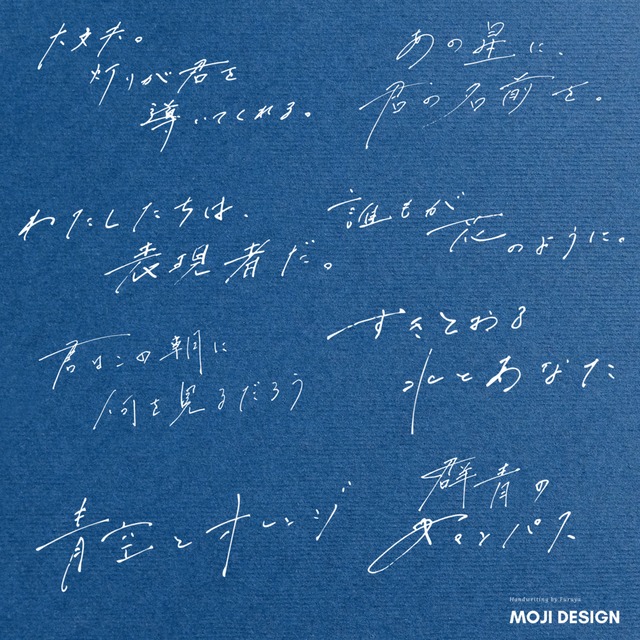 大丈夫。
灯りが君を
導いてくれる。
あの星に、
君の名前を。
わたしたちは、
表現者だ。
誰もが
花のように。
君はこの朝に
何を見るだろう
すきとおる
水とあなた
青空とオレンジ
群青の
キャンパス
Handwriting by Furuya
MOJI DESIGN